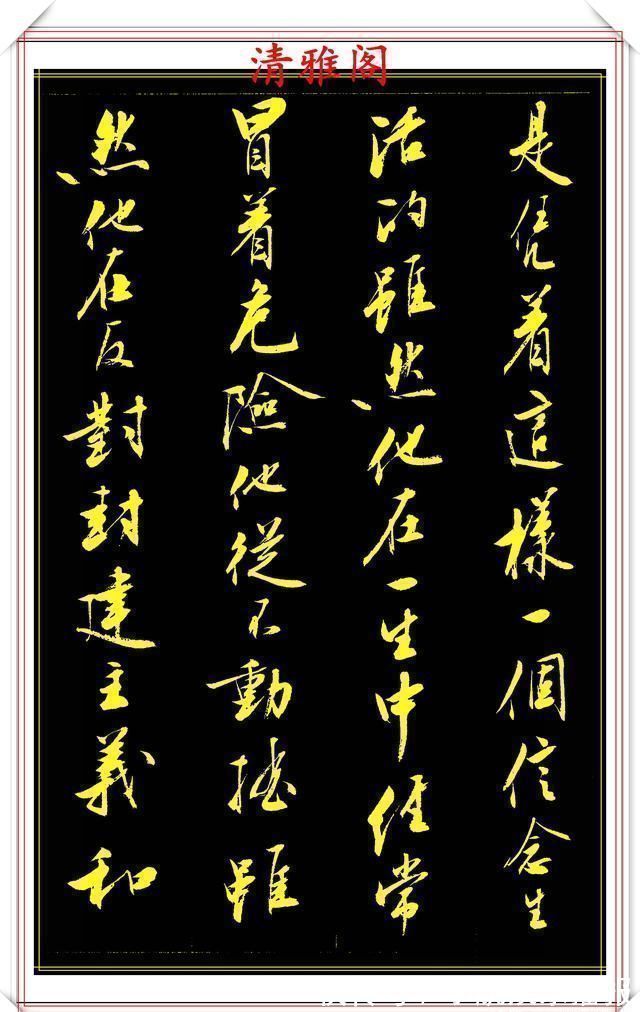 清雅阁
是凭着這樣一個信念生
活的雖然他在一生中经常
冒着危險他從不動摇雖
然他在反對封建主義和